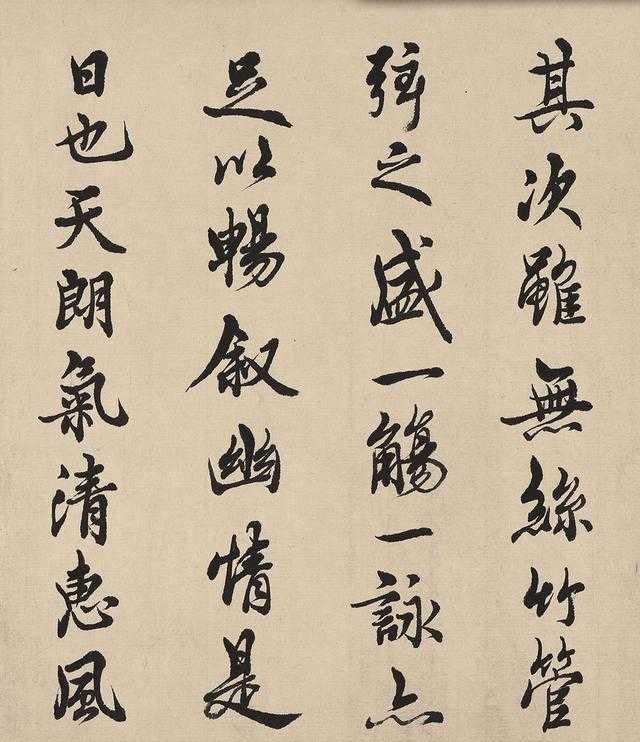 其次雖無絲竹管
弦之盛一觴一詠亦
足以暢叙幽情是
日也天朗氣清惠風